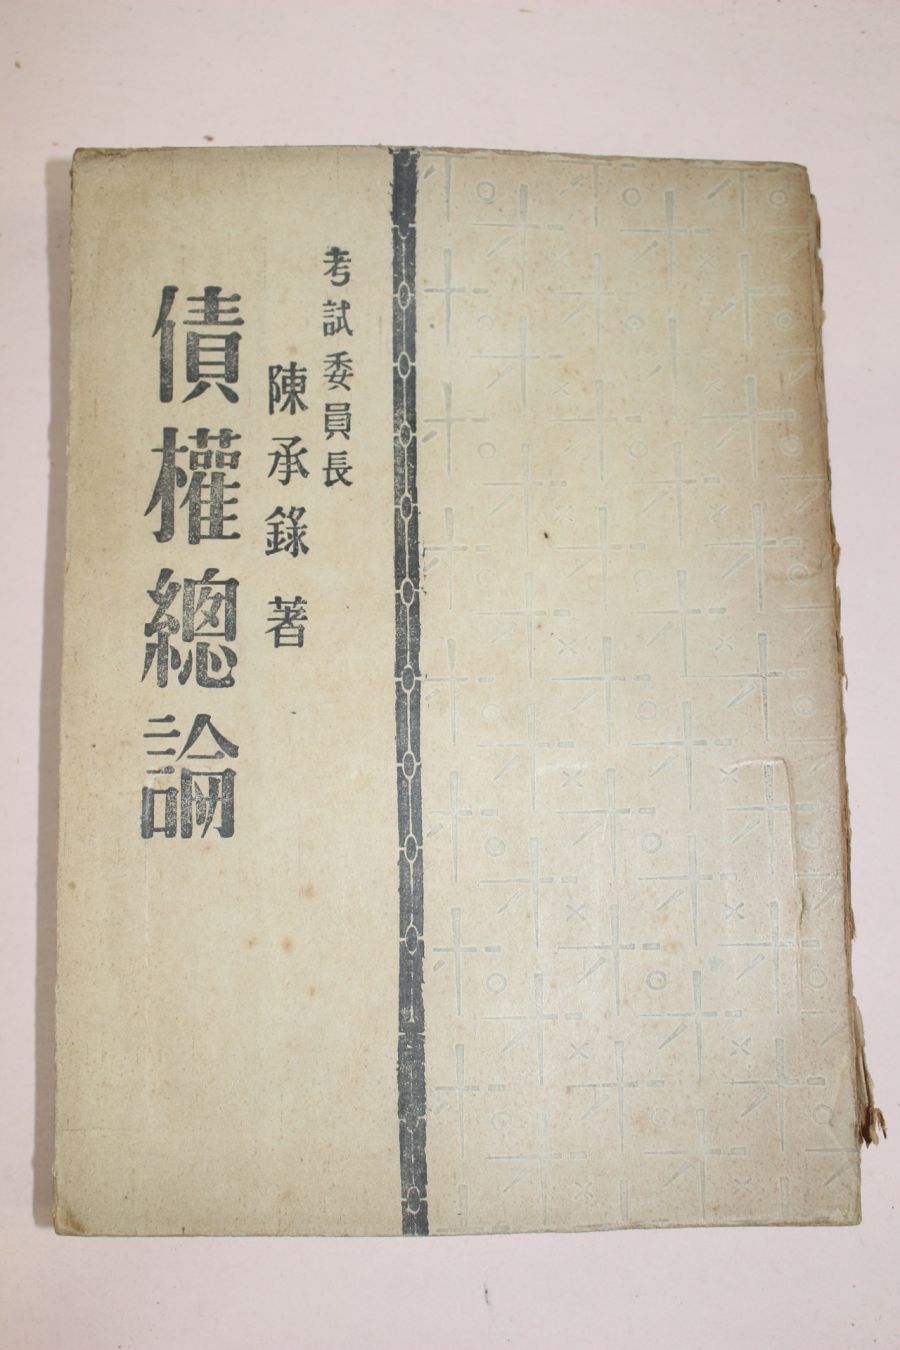 考試委員長
陳承錄 著
債權總論